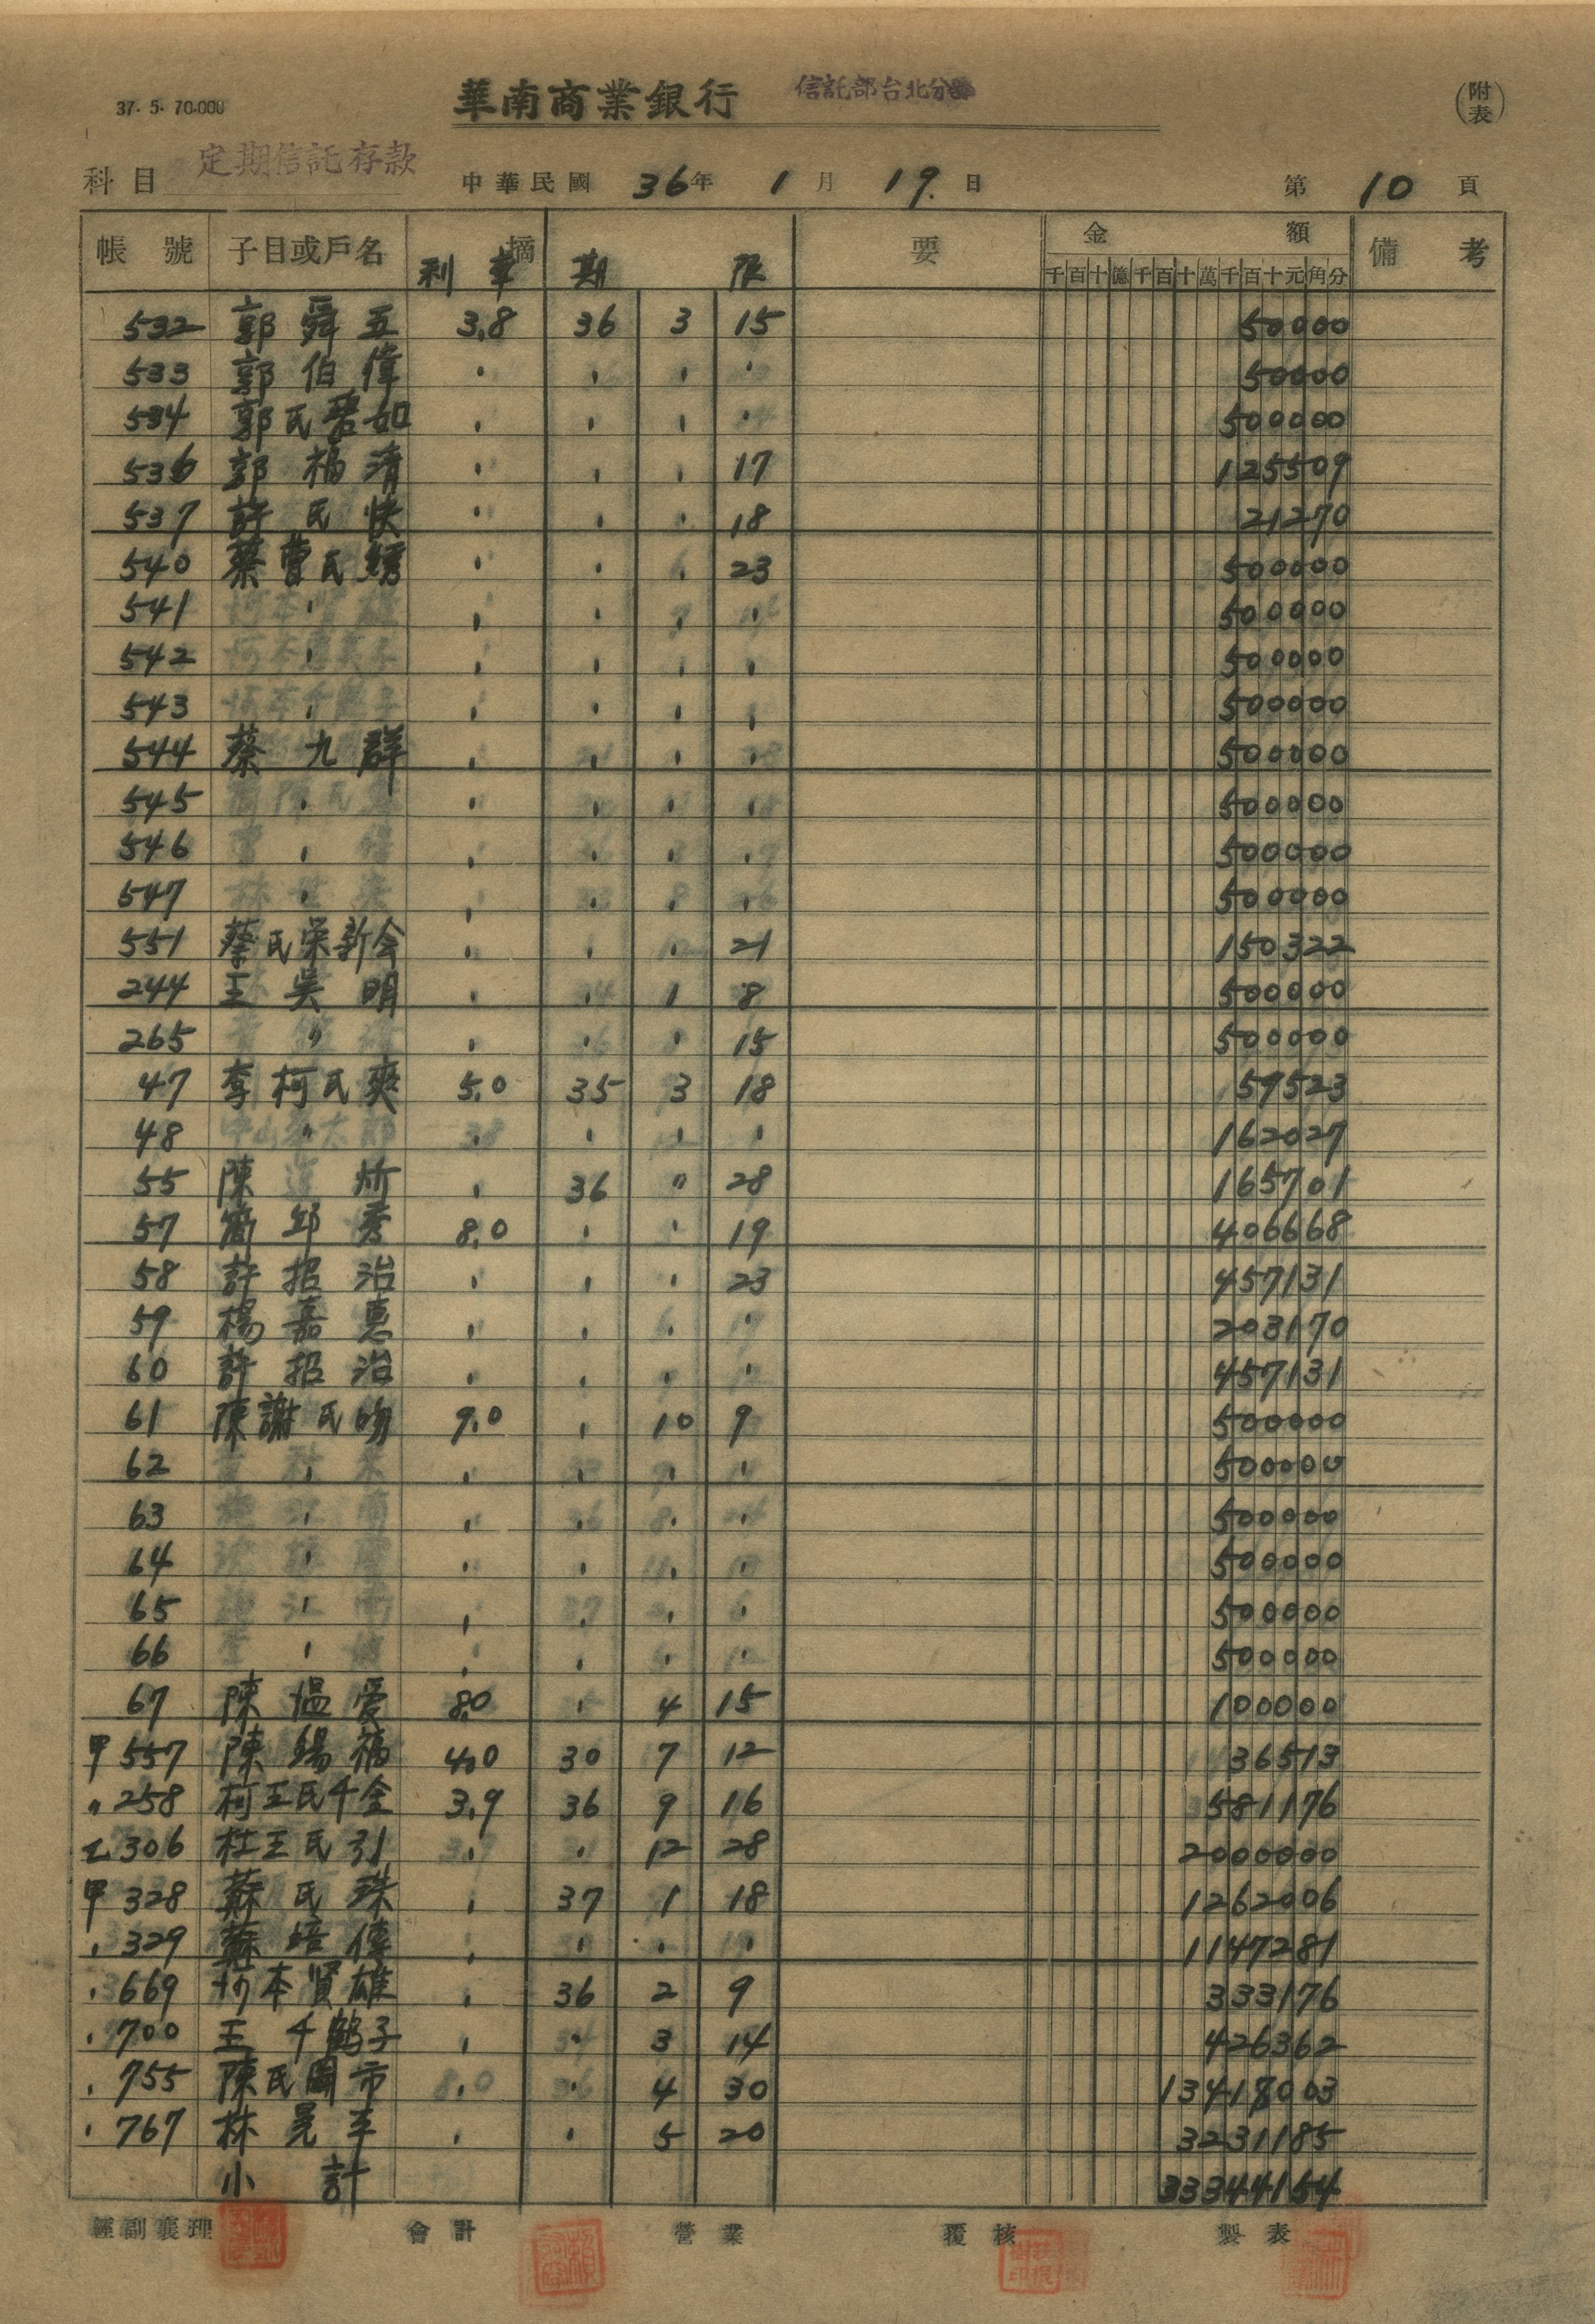 37. 5. 70.000
華南商業銀行 信託部台北分部
(附表)
科目 定期信託存款 中華民國 36年 1月 19.日 第 10 頁
帳號 子目或戶名 摘 要 金額 備考
利率 期限 千百十億千百十萬千百十元角分
532 郭舜五 3.8 36 3 15 50000
533 郭伯偉 〃 〃 〃 〃 50000
534 郭氏碧如 〃 〃 〃 〃 500000
536 郭楊清 〃 〃 〃 17 125509
537 許氏快 〃 〃 〃 18 21270
540 蔡曹氏綉 〃 〃 〃 23 500000
541 〃 〃 〃 〃 〃 500000
542 〃 〃 〃 〃 〃 500000
543 〃 〃 〃 〃 〃 500000
544 蔡九群 〃 〃 〃 〃 500000
545 〃 〃 〃 〃 〃 500000
546 〃 〃 〃 〃 〃 500000
547 〃 〃 〃 〃 〃 500000
551 蔡氏榮新会 〃 〃 〃 21 150322
244 王吳明 〃 〃 1 8 500000
265 〃 〃 〃 〃 15 500000
47 李柯氏爽 5.0 35 3 18 59523
48 〃 〃 〃 〃 〃 162027
55 陳炘 〃 36 〃 28 165701
57 簡邱秀 8.0 〃 〃 19 406668
58 許招治 〃 〃 〃 23 457131
59 楊嘉惠 〃 〃 〃 〃 203170
60 許招治 〃 〃 〃 〃 457131
61 陳謝氏吻 9.0 〃 10 9 500000
62 〃 〃 〃 〃 〃 500000
63 〃 〃 〃 〃 〃 500000
64 〃 〃 〃 〃 〃 500000
65 〃 〃 〃 〃 〃 500000
66 〃 〃 〃 〃 〃 500000
67 陳愠愛 8.0 〃 4 15 100000
甲557 陳錫福 4.0 30 7 12 36513
〃258 柯王氏千金 3.9 36 9 16 581176
乙306 杜王氏引 〃 〃 12 28 2000000
甲328 蘇氏珠 〃 37 1 18 1262006
〃329 蘇培偉 〃 〃 〃 〃 1147281
〃669 坂本賢雄 〃 36 2 9 333176
〃700 王千鶴子 〃 〃 3 14 426362
〃755 陳氏圓市 〃 〃 4 30 13418003
〃767 林晃丰 〃 〃 5 20 3231185
小計 33344154
經副襄理 會計 營業 覆核 製表